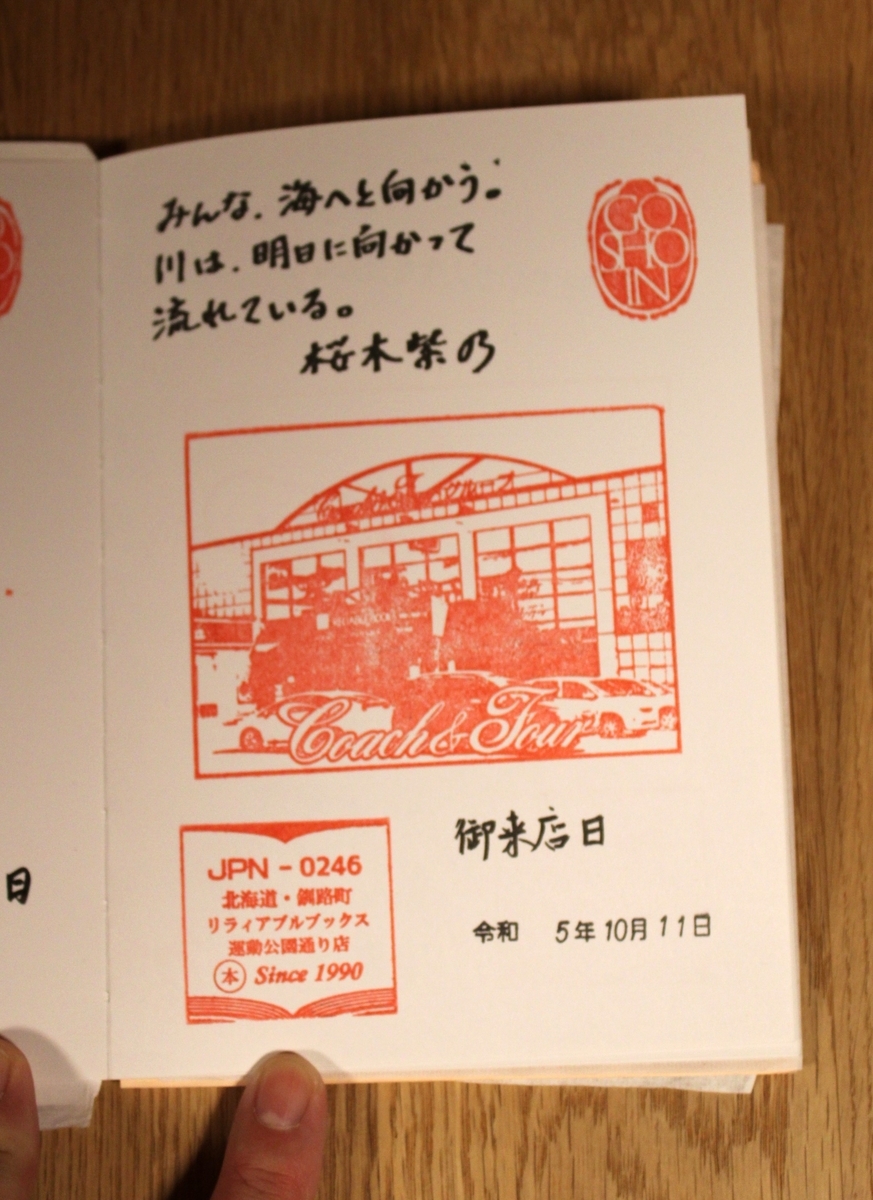 みんな、海へと向かう。
川は、明日に向かって
流れている。
桜木紫乃
GO
SHO
IN
Coach & Four
JPN - 0246
北海道・釧路町
リライアブルブックス
運動公園通り店
本 Since 1990
御来店日
令和 5年10月11日
日